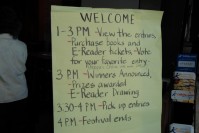 WELCOME
1-3 PM - View the entries
- Purchase books and
E-Reader tickets - Vote
for your favorite entry.
3 PM - Winners Announced,
- Prizes awarded
- E-Reader Drawing
3:30-4 PM - Pick up entries
4 PM - Festival ends